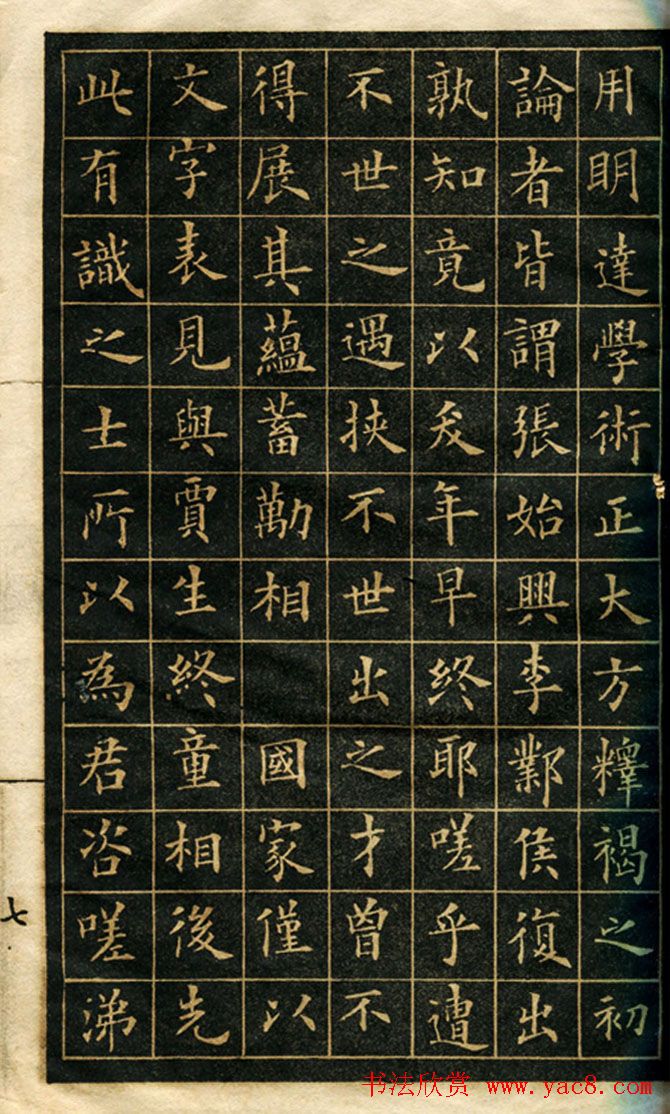 用明達學術正大方釋褐之初
論者皆謂張始興李鄴侯復出
孰知竟以犮年早終耶嗟乎遭
不世之遇挾不世出之才曾不
得展其蘊蓄勷相國家僅以
文字表見與賈生終童相後先
此有識之士所以為君咨嗟涕
七
书法欣赏 www.yac8.com